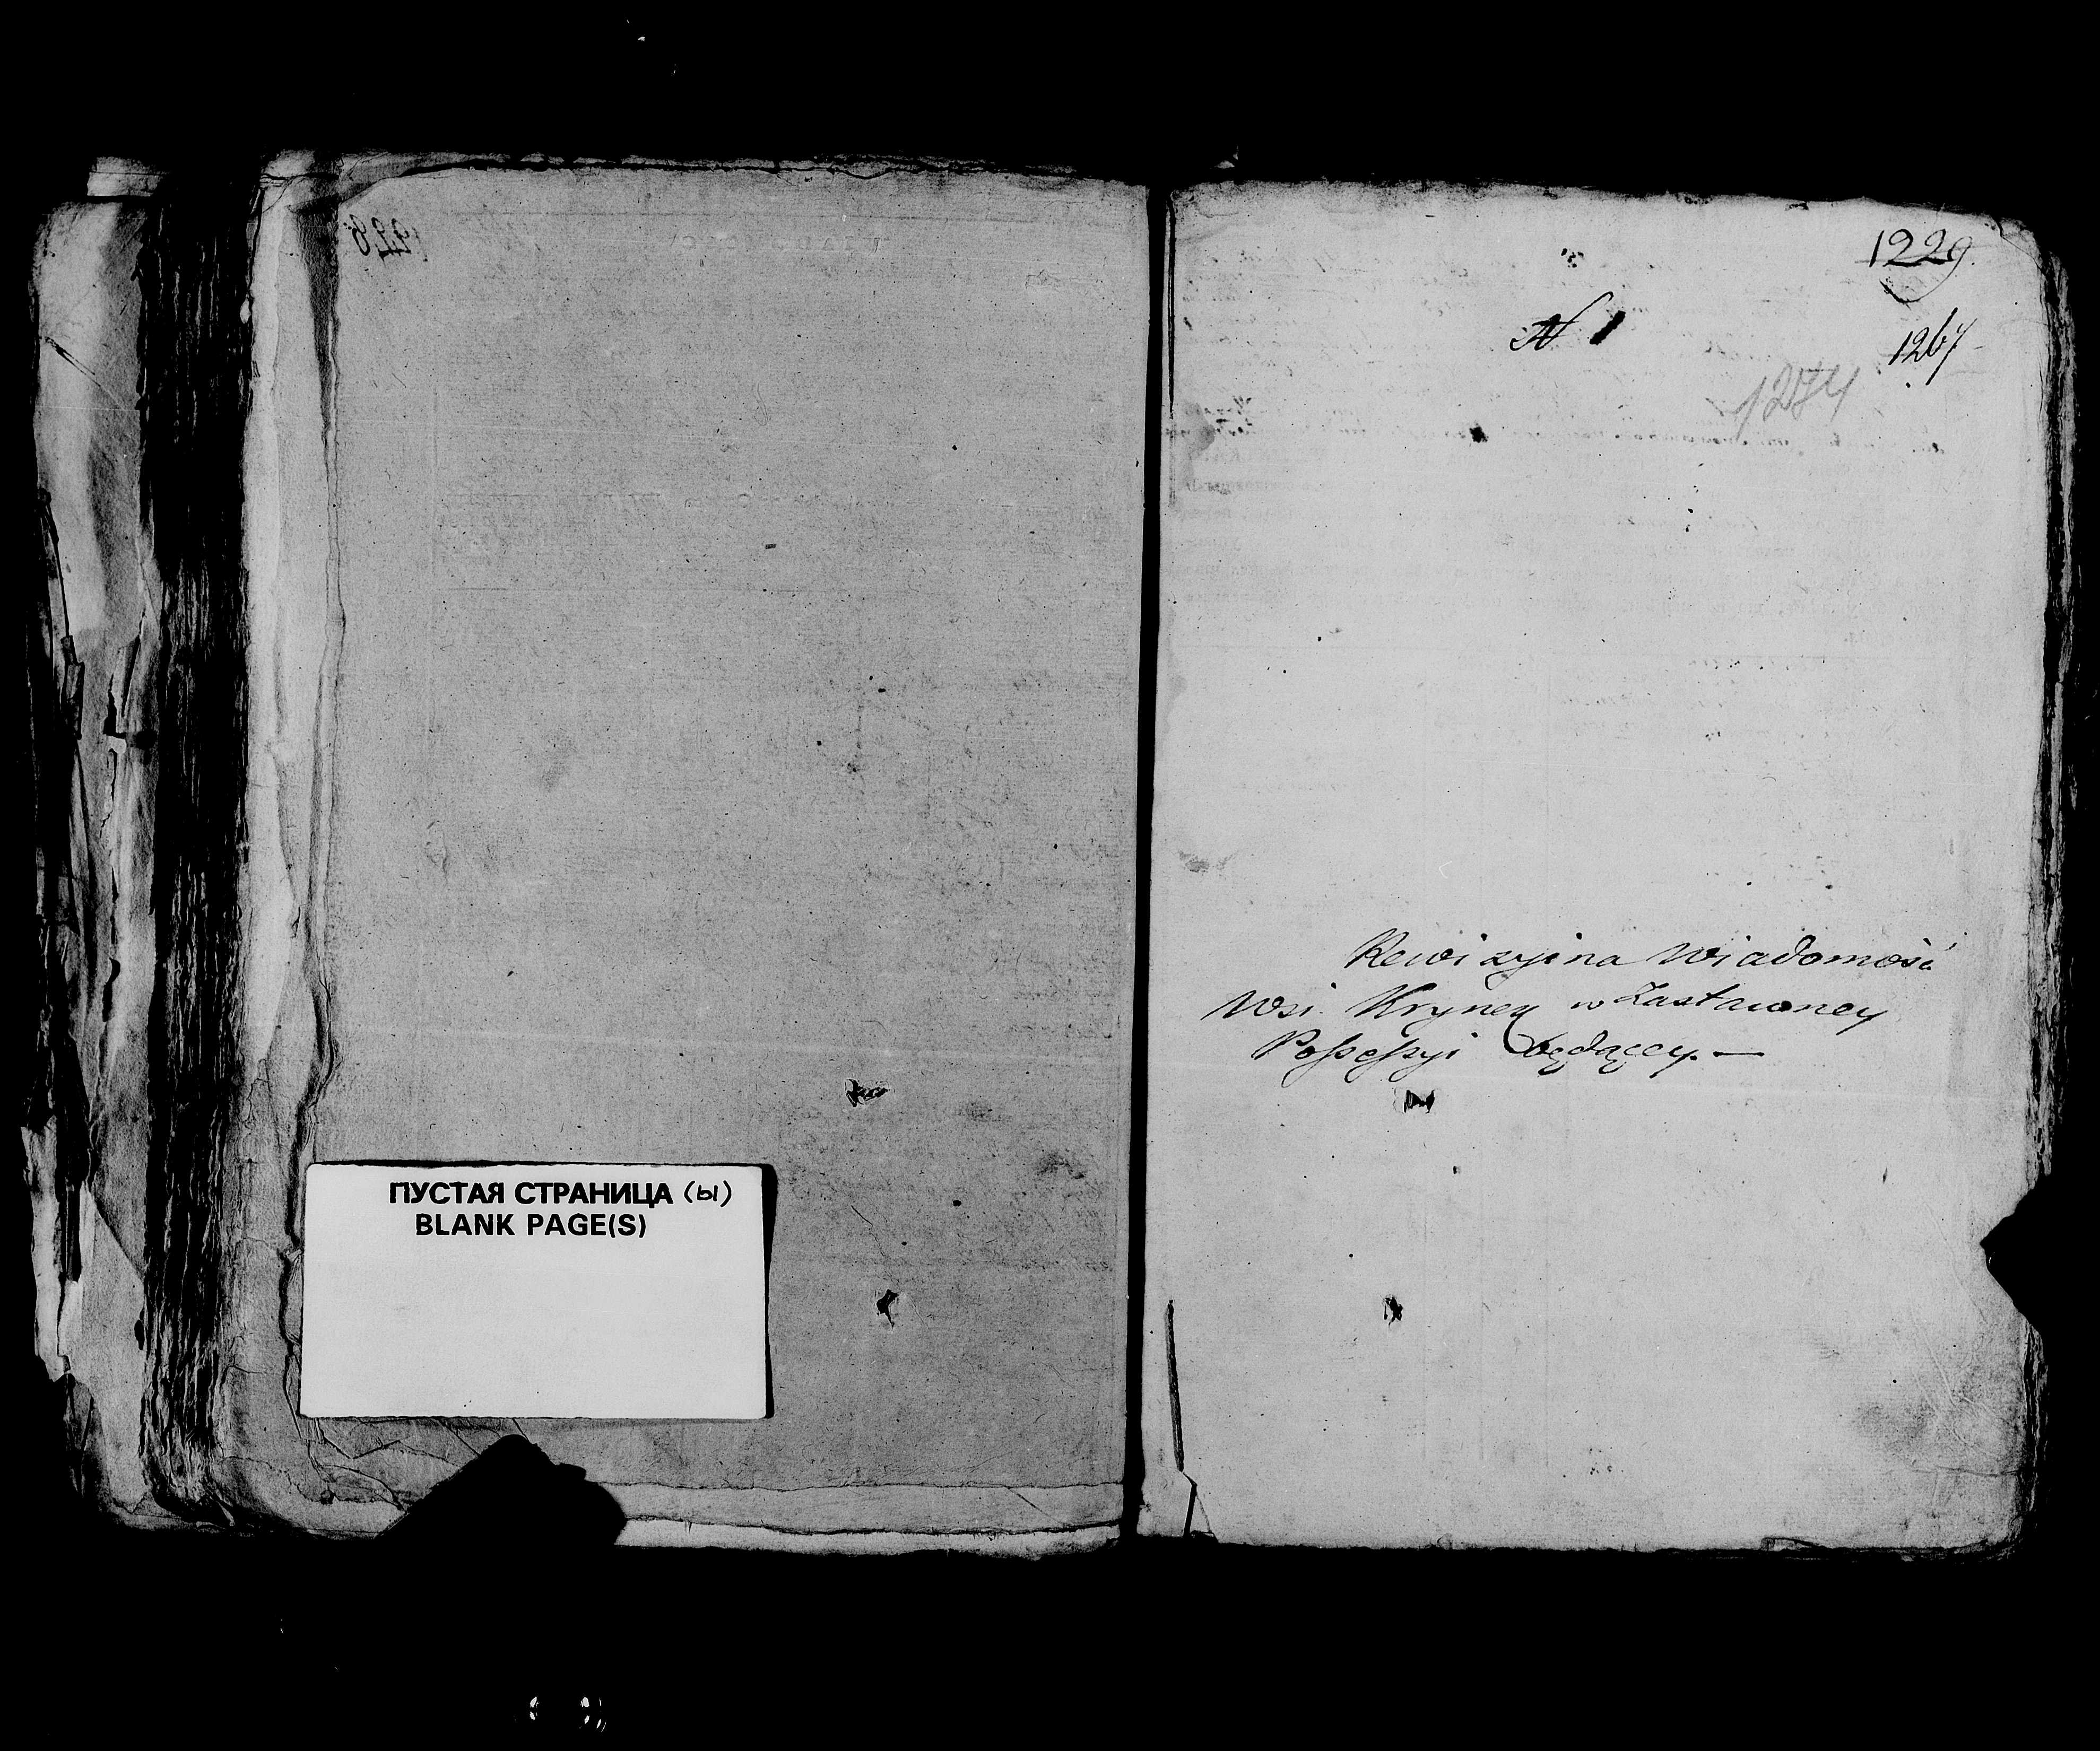 ПУСТАЯ СТРАНИЦА (Ы)
BLANK PAGE(S)
1229.
N 1
1267
1274
Rewizyina Wiadomość
Wsi Krynek w Zastawney
Possessyi będącey. —